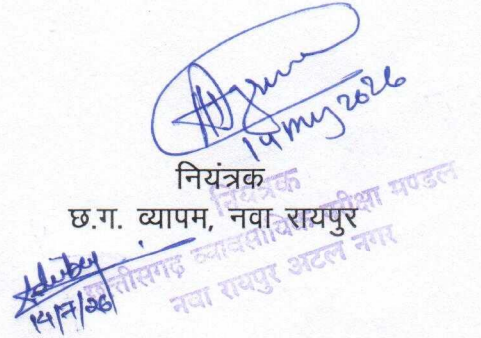 14 my 2026
नियंत्रक
छ.ग. व्यापम, नवा रायपुर
नियंत्रक
छत्तीसगढ़ व्यावसायिक परीक्षा मण्डल
नवा रायपुर अटल नगर
14/7/26